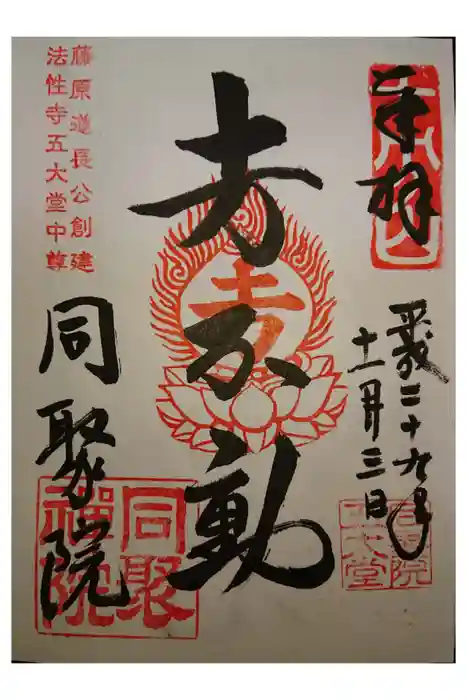 奉拝
平成二十九年
十一月三日
同聚院
五大堂
不動
藤原道長公創建
法性寺五大堂中尊
同聚院
同聚
禅院